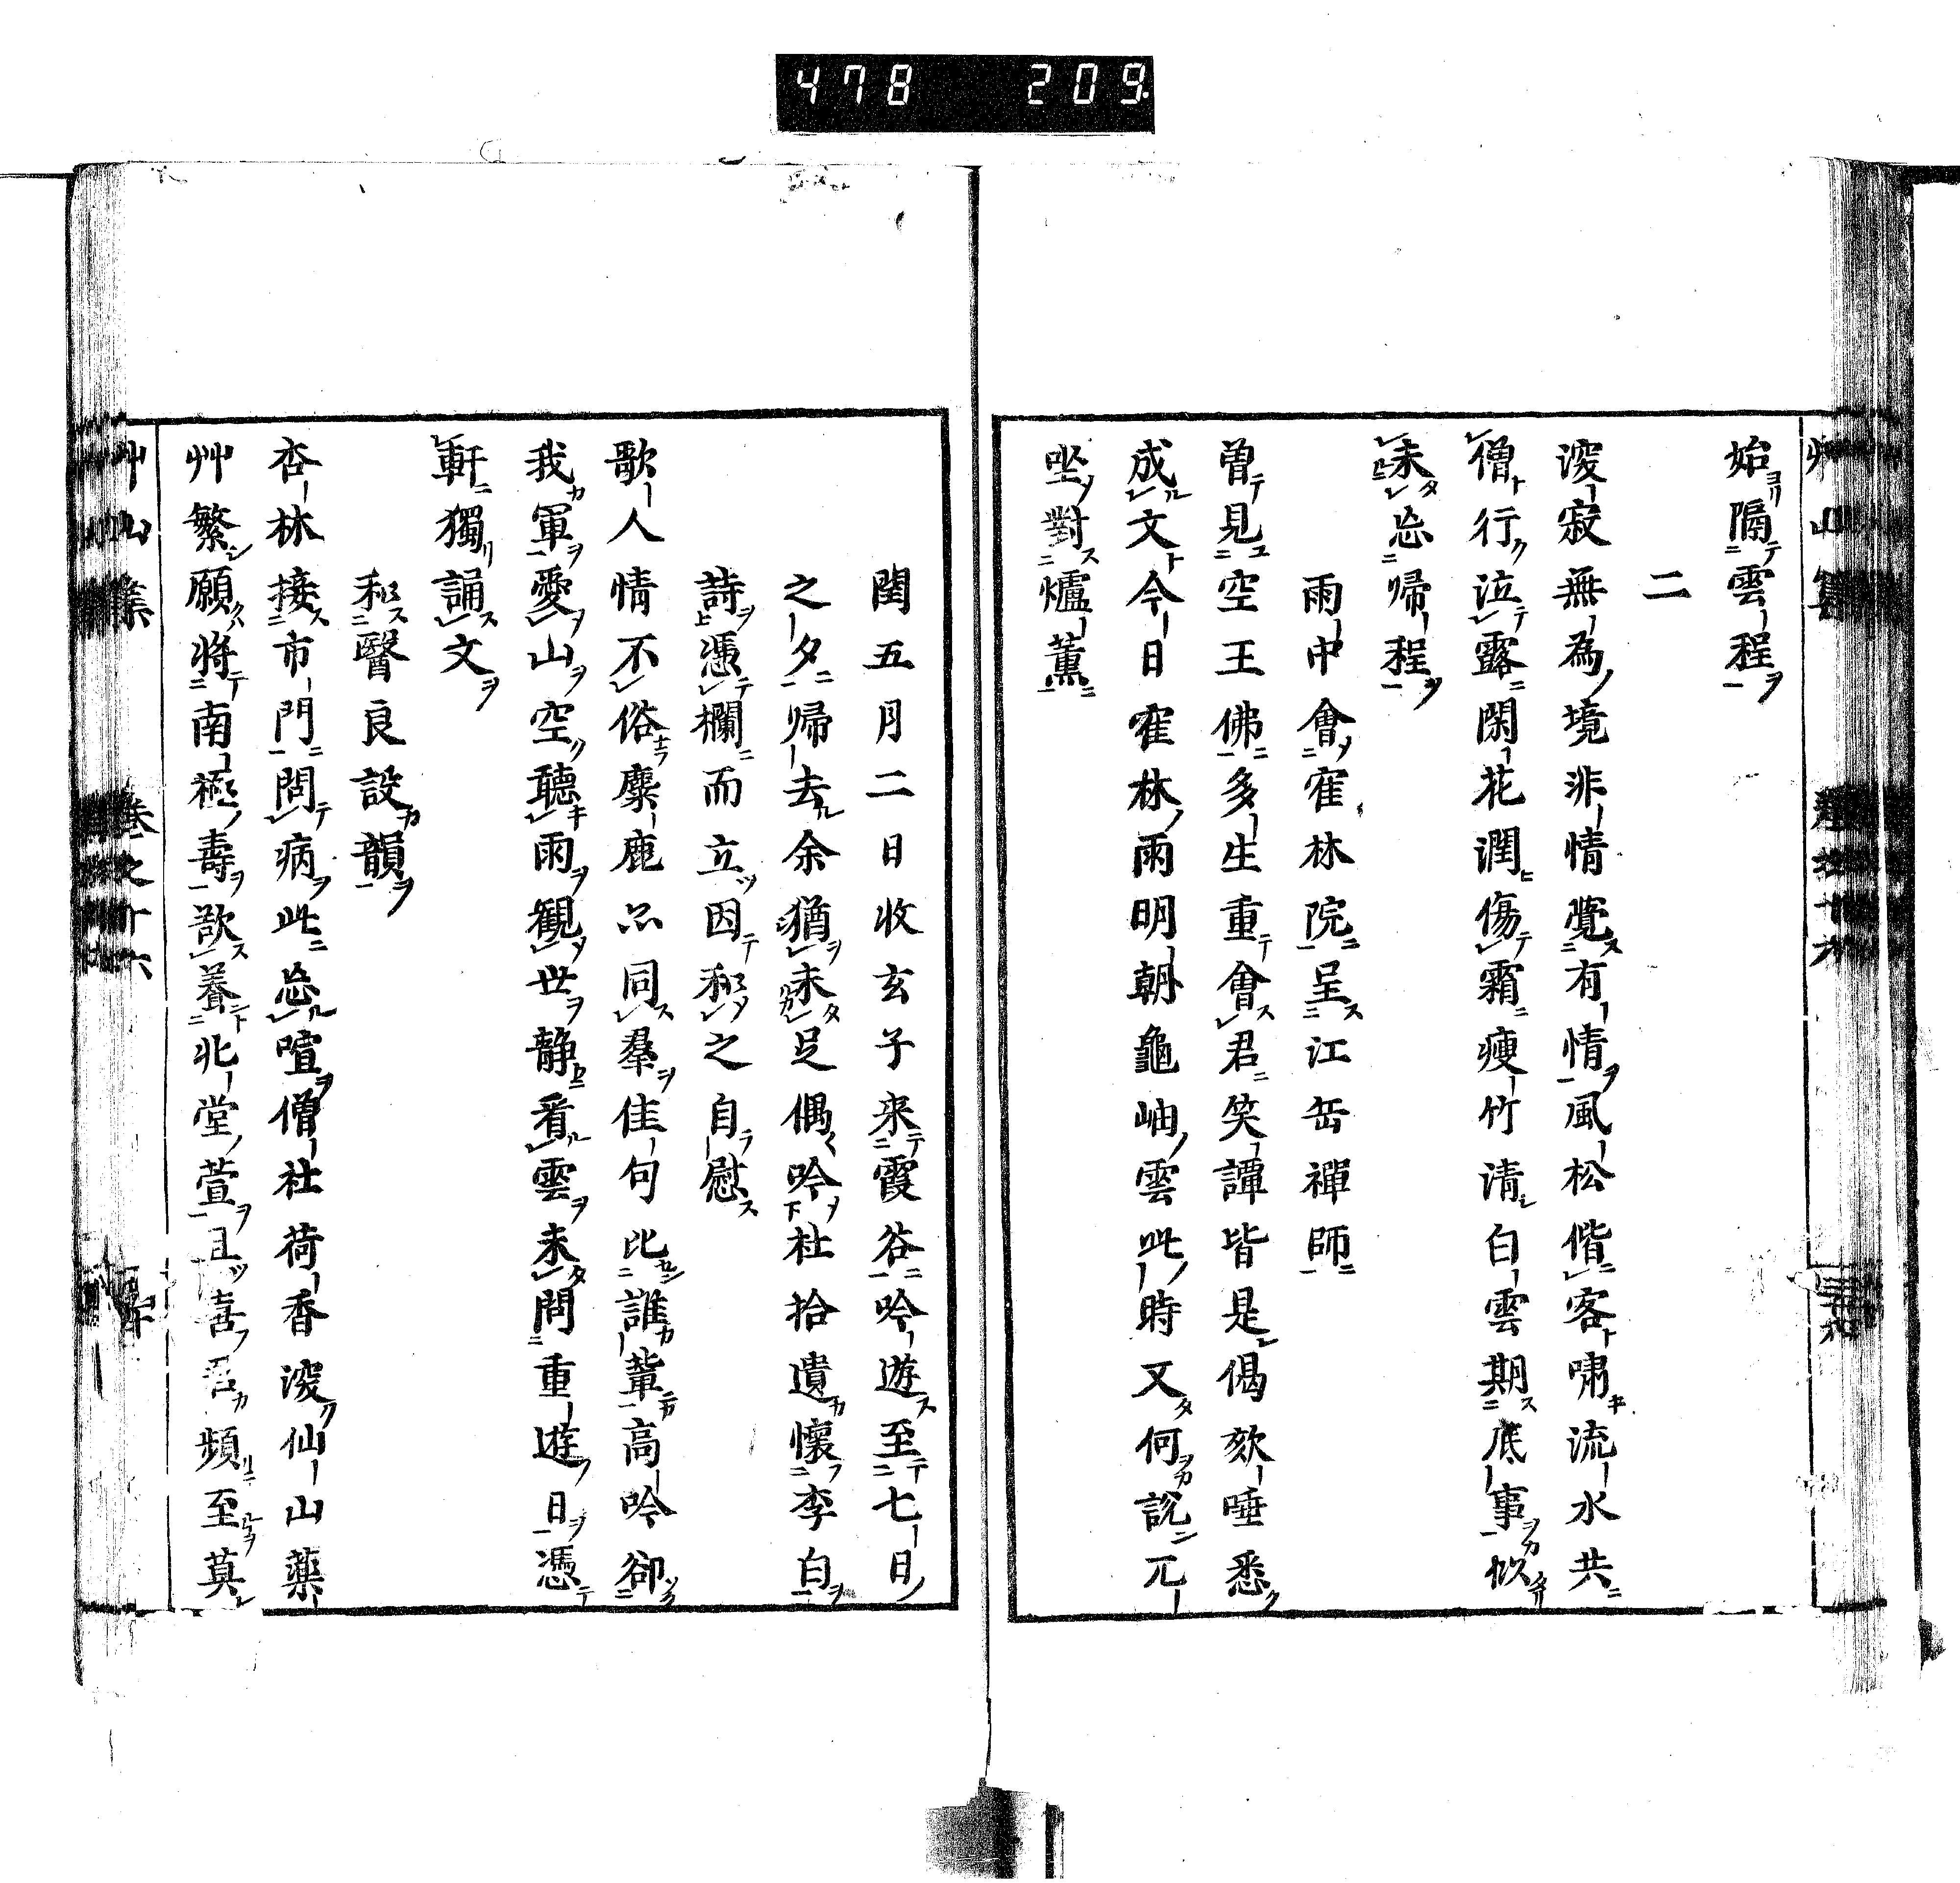 478 209
始隔雲程
二
深寂無為境非情覺有情風松偕客嘯流水共
僧行泣露閑花潤傷霜瘦竹清白雲期底事似
未忘帰程
雨中會崔林院呈江岳禪師
曽見空王佛多生重會君笑譚皆是偈欬唾悉
成文今日崔林雨明朝龜岫雲此時又何説兀
坐對爐薫
閏五月二日收玄子來霞谷吟遊至七日
之夕帰去余猶未足偶吟杜拾遺懷李白
詩憑欄而立因和之自慰
歌人情不俗麋鹿忽同羣佳句比誰輩高吟卻
我軍愛山空聽雨観世静看雲未問重遊日憑
軒獨誦文
和醫良設韻
杏林接市門問病此忘喧僧社荷香深仙山藥
艸繁願將南極壽欲養北堂萱且喜君頻至莫
艸山集 巻之十六